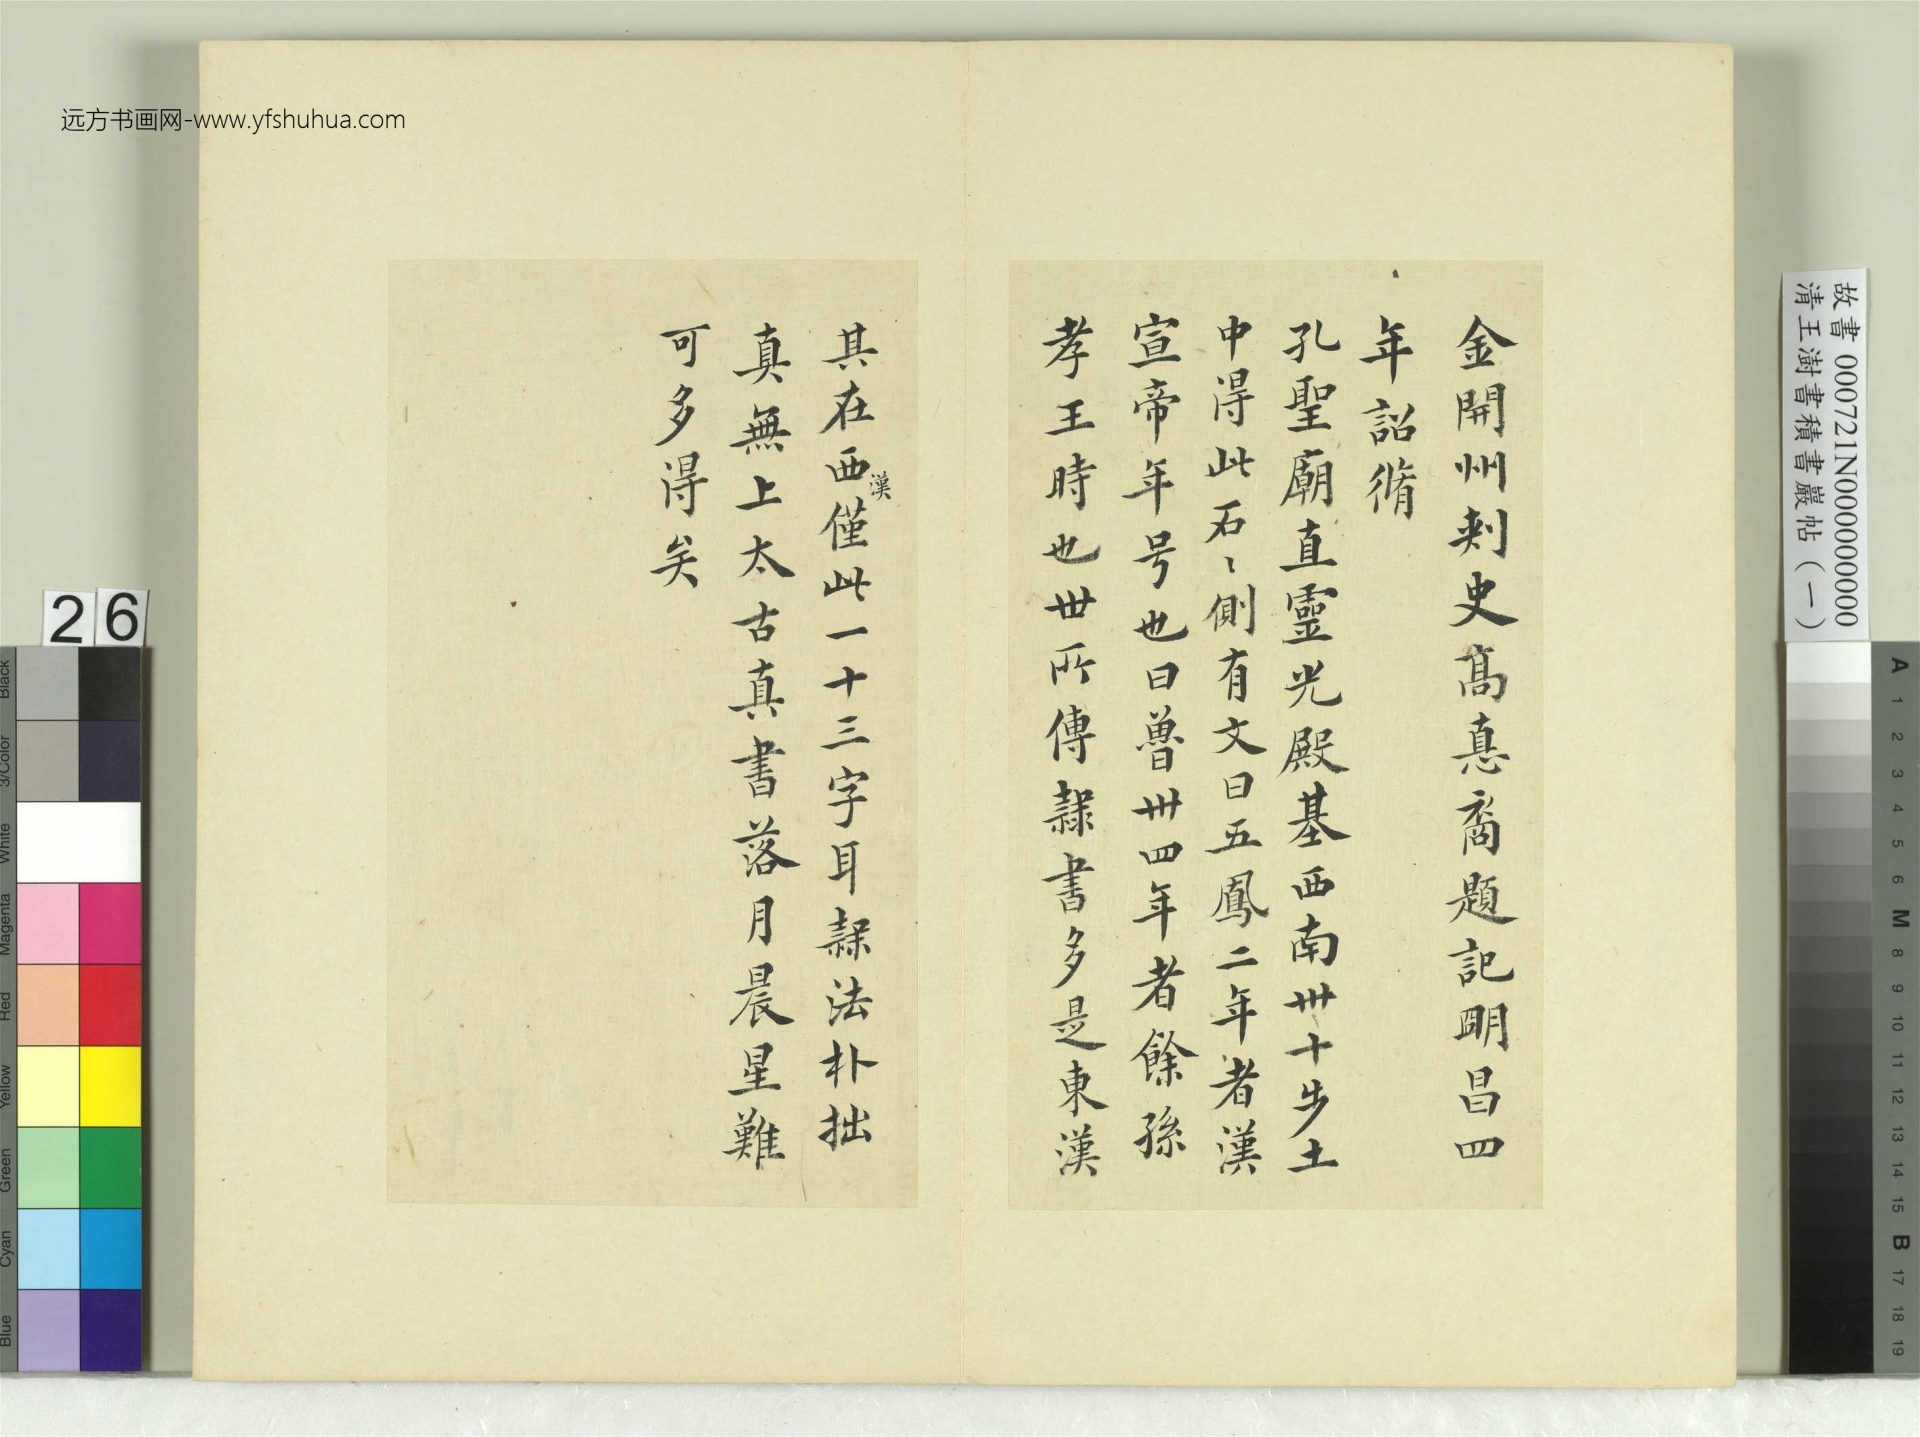 远方书画网-www.yfshuhua.com
金開州刾史髙惪裔題記明昌四
年詔脩
孔聖廟直靈光殿基西南卅十步土
中得此石〻側有文曰五鳳二年者漢
宣帝年号也曰魯卅四年者餘孫
孝王時也世所傳隷書多是東漢
其在西漢僅此一十三字耳隷法朴拙
真無上太古真書落月晨星難
可多得矣
故書 000721N000000000
清王澍書積書巖帖（一）
26
Black
3/Color
White
Magenta
Red
Yellow
Green
Cyan
Blue
A
1
2
3
4
5
6
M
8
9
10
11
12
13
14
15
B
17
18
19